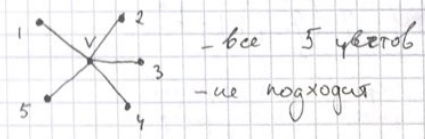 1
2
V
3
4
5
- все 5 цветов
- не подходит